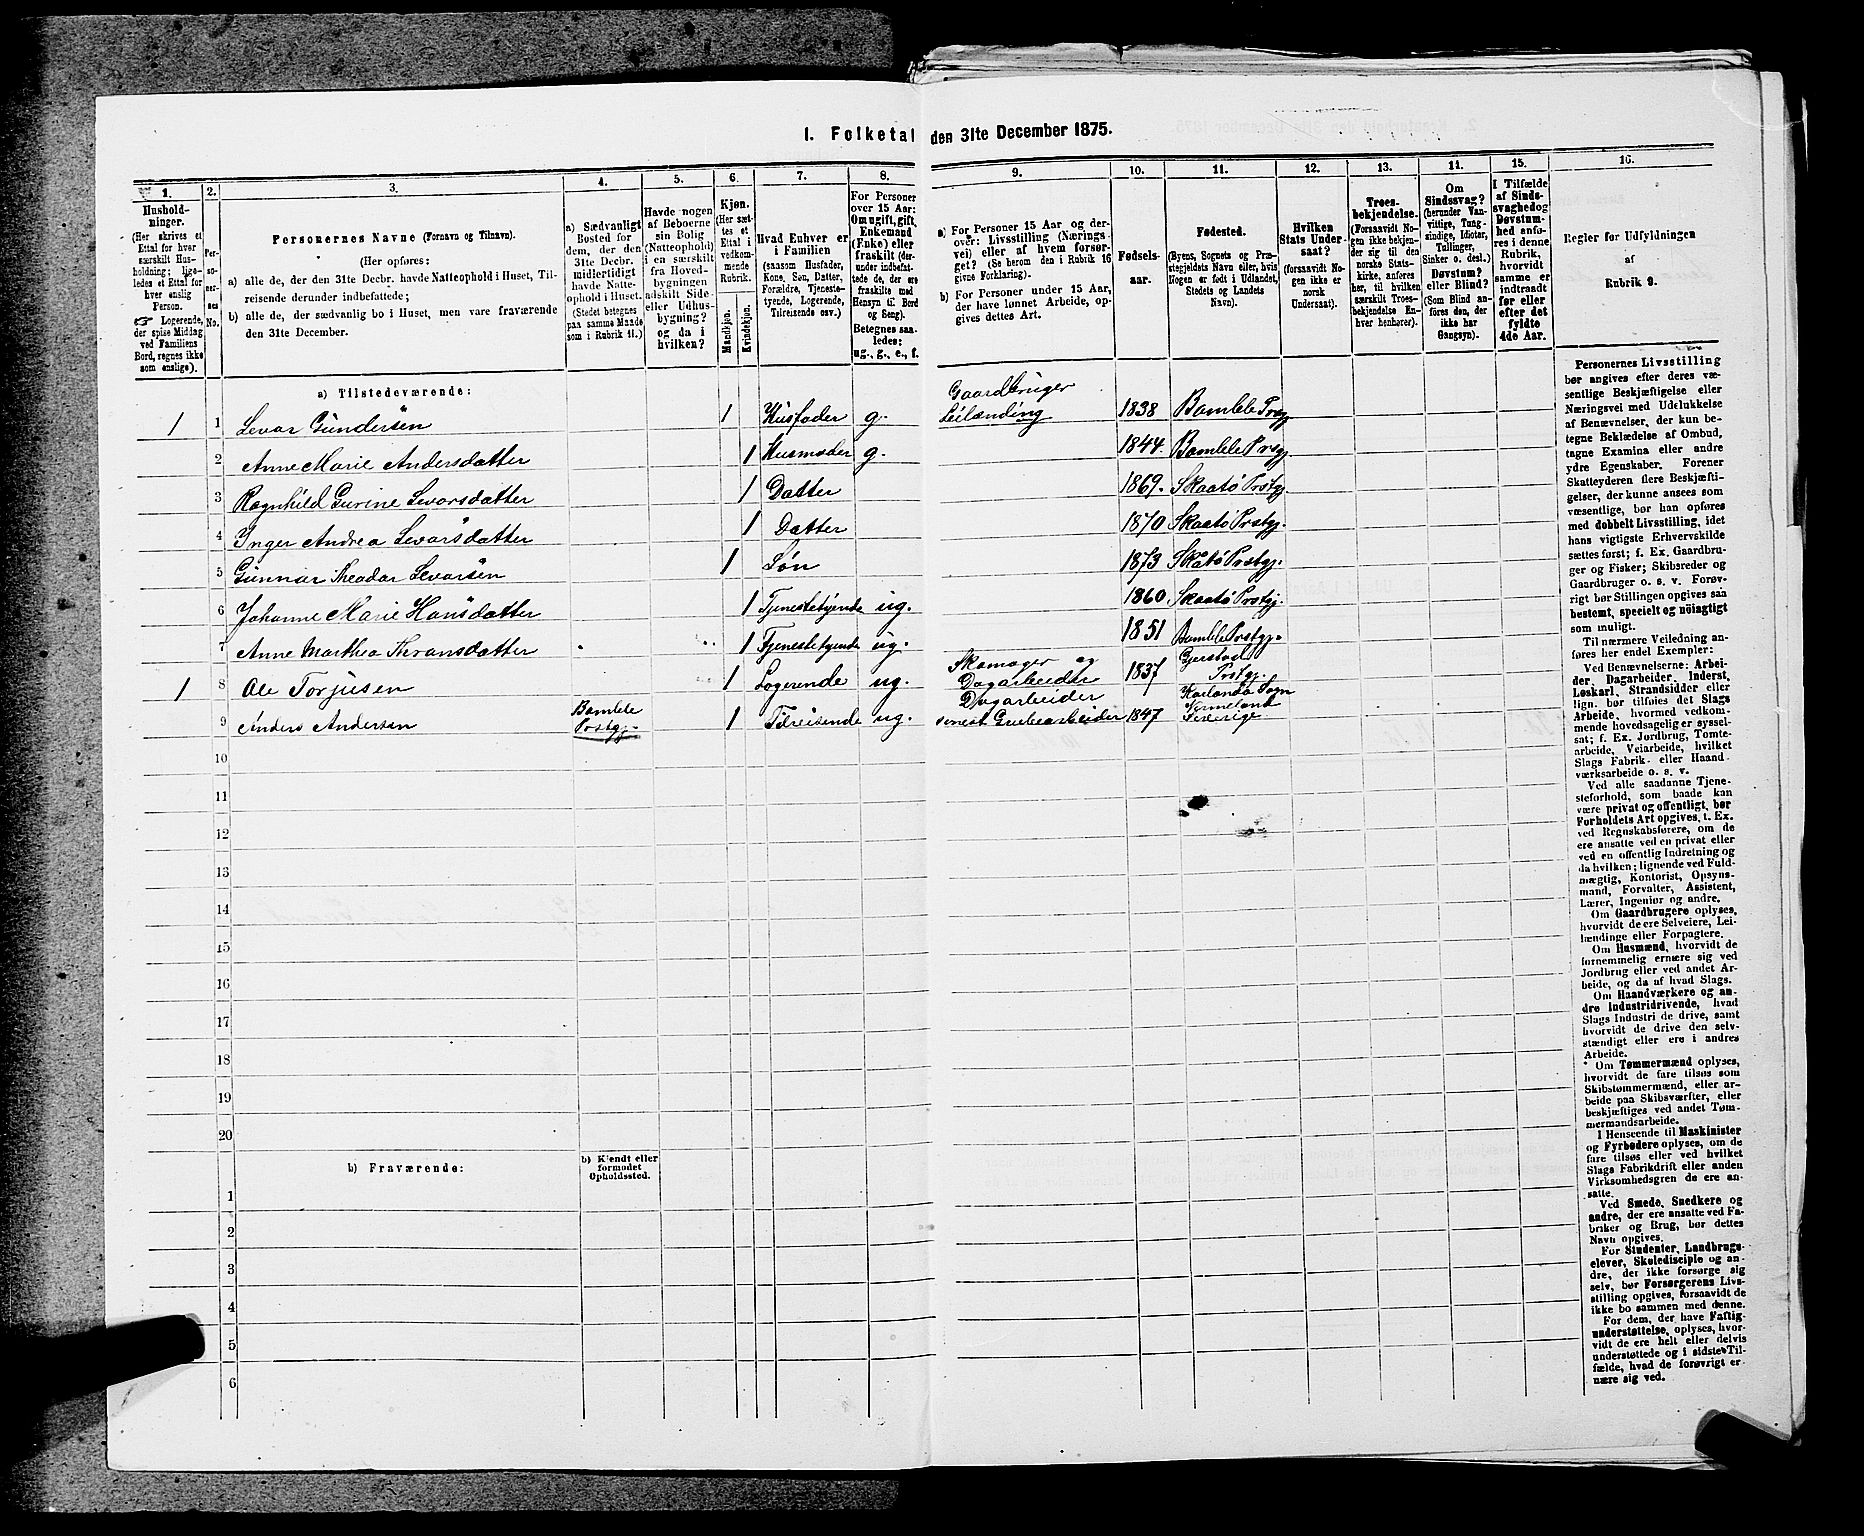 I. Folketal den 31te December 1875.
1.
2.
3.
4.
5.
6.
7.
8.
9.
10.
11.
12.
13.
14.
15.
16.
Hushold-
ninger.
(Her skrives et
Ettal for hver
særskilt Hus-
holdning; lige-
ledes et Ettal
for hver
enslig
Person.
☞ Logerende,
der spise Middag
ved Familiens
Bord, regnes ikke
som enslige).
Per-
so-
ner-
nes
No.
Personernes Navne (Fornavn og Tilnavn).
(Her opføres:
a) alle de, der den 31te Decbr. havde Natteophold i Huset, Til-
reisende derunder indbefattede;
b) alle de, der sædvanlig bo i Huset, men vare fraværende
den 31te December.
a) Sædvanligt
Bosted for
dem, der den
31te Decbr.
midlertidigt
havde Natte-
ophold i Huset.
(Stedet betegnes
paa samme Maade
som i Rubrik 11.)
Havde nogen
af Beboerne
sin Bolig
(Natteophold)
i en særskilt
fra Hoved-
bygningen
adskilt Side-
eller Udhus-
bygning?
og da i
hvilken?
Kjøn.
(Her sæt-
tes et
Ettal i
vedkom-
mende
Rubrik.
Mandkjøn.
Kvindekjøn.
Hvad Enhver er
i Familien
(saasom Husfader,
Kone, Søn, Datter,
Forældre, Tjeneste-
tyende, Logerende,
Tilreisende osv.)
For Personer
over 15 Aar:
Om ugift, gift,
Enkemand
(Enke) eller
fraskilt (der-
under indbefat-
tede de, der ere
fraskilte med
Hensyn til Bord
og Seng).
Betegnes saa-
ledes:
ug., g., e., f.
a) For Personer 15 Aar og der-
over: Livsstilling (Nærings-
vei) eller af hvem forsør-
get? (Se herom den i Rubrik 16
givne Forklaring).
b) For Personer under 15 Aar,
der have lønnet Arbeide, op-
gives dettes Art.
Fødsels-
aar.
Fødested.
(Byens, Sognets og Præ-
stegjeldets Navn eller, hvis
Nogen er født i Udlandet,
Stedets og Landets
Navn).
Hvilken
Stats Under-
saat?
(forsaavidt No-
gen ikke er
norsk
Undersaat).
Troes-
bekjendelse.
(Forsaavidt No-
gen ikke bekjen-
der sig til den
norske Stats-
kirke, anføres
her, til hvilken
særskilt Troes-
bekjendelse En-
hver henhører).
Om
Sindssvag?
(herunder Van-
vittige, Tung-
sindige, Idioter,
Tullinger,
Sinker o. desl.)
Døvstum?
eller Blind?
(Som Blind an-
føres den, der
ikke har
Gangsyn).
I Tilfælde
af Sinds-
svaghed og
Døvstum-
hed anfø-
res i denne
Rubrik,
hvorvidt
samme er
indtraadt
før eller
efter det
fyldte
4de Aar.
Regler for Udfyldningen
af
Rubrik 9.
a) Tilstedeværende:
1 1 Levor Gundersen 1 Husfader g. Gaardbruger
Leilænding 1838 Bamble Prstgj.
2 Anne Marie Andersdatter 1 Husmoder g. 1844. Bamble Prsgj.
3 Ragnhild Gurine Levorsdatter 1 Datter 1869. Skaatø Prstgj.
4 Inger Andrea Levorsdatter 1 Datter 1870 Skaatø Prstgj.
5 Gunnar Theodor Levorsen 1 Søn 1873 Skatø Prstgj.
6 Johanne Marie Hansdatter 1 Tjenestetyende ug. 1860. Skaatø Prstgj.
7 Anne Marthea Thronsdatter 1 Tjenestetyende ug. 1851 Bamble Prstgj.
1 8 Ole Torjusen 1 Logerende ug. Skomager og
Dagarbeider 1837 Gjerstad
Prstgj.
9 Anders Andersen Bamble
Prstgj. 1 Tilreisende ug. Dagarbeider
senest Grubearbeider 1847 Karlanda Sogn
Vermeland
Sverige
10
11
12
13
14
15
16
17
18
19
20
b) Fraværende:
b) Kjendt eller
formodet
Opholdssted.
1
2
3
4
5
6
Personernes Livsstilling
bør angives efter deres væ-
sentlige Beskjæftigelse eller
Næringsvei med Udelukkelse
af Benævnelser, der kun be-
tegne Beklædelse af Ombud,
tagne Examina eller andre
ydre Egenskaber. Forener
Skatteyderen flere Beskjæfti-
gelser, der kunne ansees som
væsentlige, bør han opføres
med dobbelt Livsstilling, idet
hans vigtigste Erhvervskilde
sættes først; f. Ex. Gaardbru-
ger og Fisker; Skibsreder og
Gaardbruger o. s. v. Forøv-
rigt bør Stillingen opgives saa
bestemt, specielt og nöiagtigt
som muligt.
Til nærmere Veiledning an-
føres her endel Exempler:
Ved Benævnelserne: Arbei-
der, Dagarbeider, Inderst,
Løskarl, Strandsidder eller
lign. bør tilføies det Slags
Arbeide, hvormed vedkom-
mende hovedsagelig er syssel-
sat; f. Ex. Jordbrug, Tomte-
arbeide, Veiarbeide, hvilket
Slags Fabrik- eller Haand-
værksarbeide o. s. v.
Ved alle saadanne Tjene-
steforhold, som baade kan
være privat og offentligt, bør
Forholdets Art opgives, f. Ex.
ved Regnskabsførere, om de
ere ansatte ved en privat eller
ved en offentlig Indretning og
da hvilken; lignende ved Fuld-
mægtig, Kontorist, Opsyns-
mand, Forvalter, Assistent,
Lærer, Ingeniør og andre.
Om Gaardbrugere oplyses,
hvorvidt de ere Selveiere, Lei-
lændinge eller Forpagtere.
Om Husmænd, hvorvidt de
fornemmelig ernære sig ved
Jordbrug eller ved andet Ar-
beide, og da af hvad Slags.
Om Haandværkere og an-
dre Industridrivende, hvad
Slags Industri de drive, samt
hvorvidt de drive den selv-
stændigt eller ere i andres
Arbeide.
Om Tømmermænd oplyses,
hvorvidt de fare tilsøs som
Skibstømmermænd, eller ar-
beide paa Skibsværfter, eller
beskjæftiges ved andet Tøm-
mermandsarbeide.
I Henseende til Maskinister
og Fyrbødere oplyses, om de
fare tilsøs eller ved hvilket
Slags Fabrikdrift eller anden
Virksomhedsgren de ere an-
satte.
Ved Smede, Snedkere og
andre, der ere ansatte ved Fa-
briker og Brug, bør dettes
Navn opgives.
For Studenter, Landbrugs-
elever, Skoledisciple og an-
dre, der ikke forsørge sig
selv, bør Forsørgerens Livs-
stilling opgives, forsaavidt de
ikke bo sammen med denne.
For dem, der have Fattig-
understøttelse, oplyses, hvor-
vidt de ere helt eller delvis
understøttede og i sidste Til-
fælde, hvad de forøvrigt er-
nære sig ved.